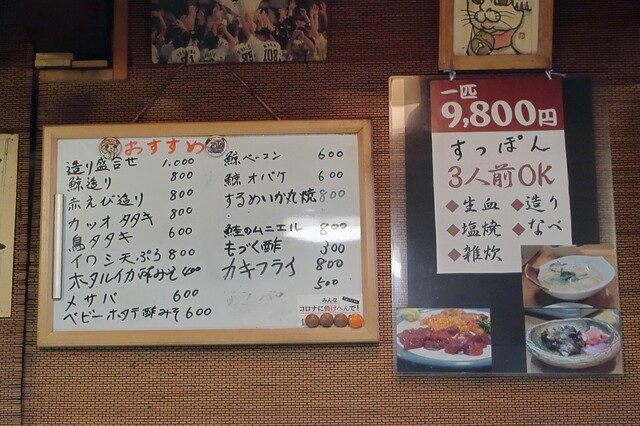 おすすめ
造り盛合せ 1.000
鯨造り 800
赤えび造り 800
カツオタタキ 800
鳥タタキ 600
イワシ天ぷら 800
ホタルイカ酢みそ 400
〆サバ 600
ベビーホタテ酢みそ 600
鯨ベーコン 600
鯨オバケ 600
するめいか丸焼 800
鮭のムニエル 800
もづく酢 300
カキフライ 800
500
みんな
コロナに負けへんで!
一匹
9,800円
すっぽん
3人前OK
◆生血 ◆造り
◆塩焼 ◆なべ
◆雑炊